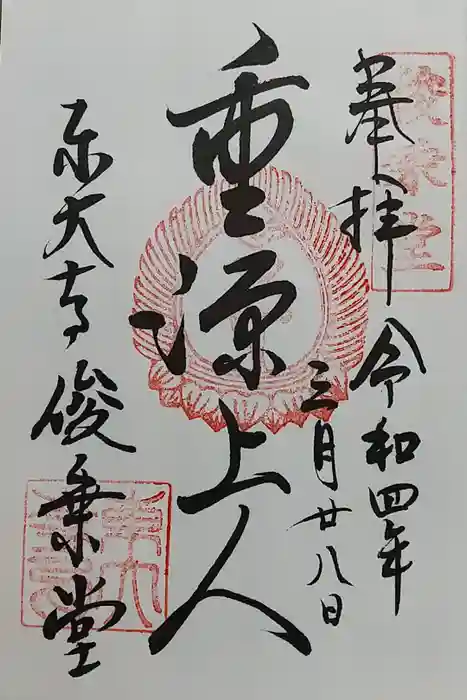 奉拝
令和四年
三月廿八日
重源上人
東大寺俊乗堂
俊乗堂